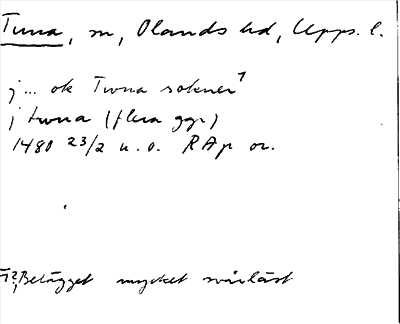 Tuna, sn, Olands hd, Upps. l.
j... ok Twna sokner?
j twna (flera ggr)
1480 23/2 u.o. RAp or.
?) Belägget mycket svårläst